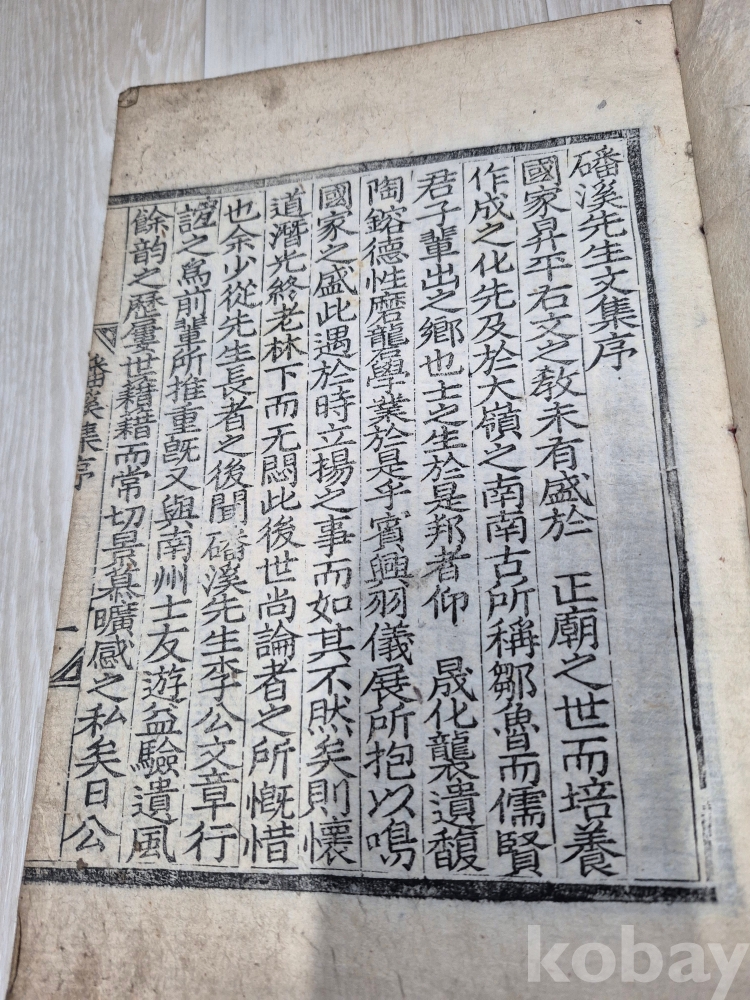 磻溪先生文集序
國家昇平右文之教未有盛於 正廟之世而培養
作成之化先及於大嶺之南南古所稱鄒魯而儒賢
君子輩出之鄉也士之生於是邦者仰 晟化襲遺馥
陶鎔德性磨礱學業於是乎賓興羽儀展所抱以鳴
國家之盛此遇於時立揚之事而如其不然矣則懷
道潛光終老林下而无悶此後世尚論者之所慨惜
也余少從先生長者之後聞磻溪先生李公文章行
誼之爲前輩所推重旣又與南州士友遊益驗遺風
餘韵之歷屢世藉藉而常切景慕曠感之私矣日公
磻溪集序
一
kobay